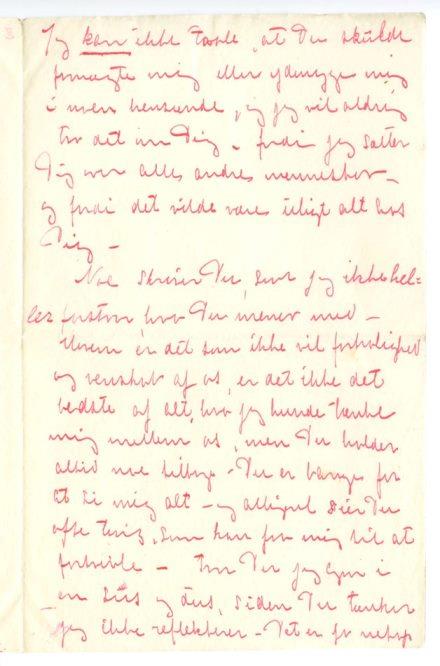 Jeg kan ikke taale, at Du skulde
foragte mig eller ydmyge mig
i nogen henseende, og jeg vil aldrig
tro det om Dig – fordi jeg sætter
Dig over alle andre mennesker –
og fordi det vilde være uligt alt hos
Dig –
Noe skriver Du, som jeg ikke hel-
ler forstaar hva Du mener med –
Hvem er det som ikke vil fortrolighed
og venskab af os, er det ikke det
bedste af alt, hva jeg kunde tænke
mig mellem os, men Du holder
altid noe tilbage – Du er bange for
at si mig alt – og alligevel siér Du
ofte ting, som kan faa mig til at
fortvivle – Tror Du jeg gaar i
en sus og dus, siden Du tænker
jeg ikke reflekterer – Det er jo netop